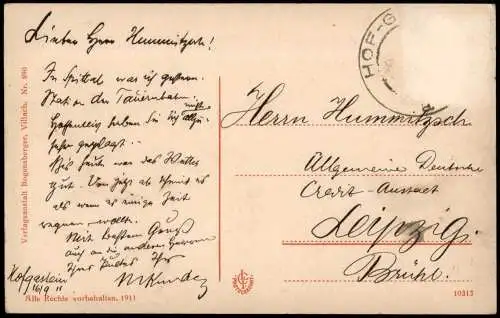 Lieber Herr Hummitzsch!
In Spittal war ich gestern.
Station der Tauernbahn.
Hoffentlich haben Sie sich nicht allzu
sehr geplagt.
Bis heute war das Wetter
gut. Von jetzt ab scheint es
als wenn es einige Zeit
regnen wollte.
Mit besten Gruß
auch an die anderen Herren
Ihr
Hofgastein
16/9 11
Verlagsanstalt Bogensberger, Villach. Nr. 890
Alle Rechte vorbehalten. 1911
HOF-G
Herrn Hummitzsch
Allgemeine Deutsche
Credit-Anstalt
Leipzig.
Brühl.
10315